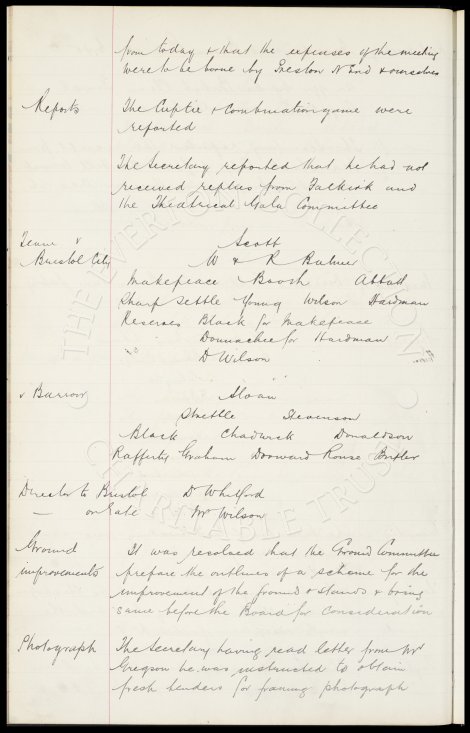 from today & that the expenses of the meeting
were to be borne by Preston N End & ourselves
Reports The Cuptie & Combination game were
reported
The Secretary reported that he had not
received replies from Falkirk and
the Theatrical Gala Committee
Team v Scott
Bristol City W & R Balmer
Makepeace Booth Abbott
Sharp Settle Young Wilson Hardman
Reserves Black for Makepeace
Donnachie for Hardman
D Wilson
v Barrow Sloan
Strettle Stevenson
Black Chadwick Donaldson
Rafferty Graham Dorward Rouse Butler
Director to Bristol D Whitford
— Mr Wilson
Ground It was resolved that the Ground Committee
improvements prepare the outlines of a scheme for the
improvement of the ground & stands & bring
same before the Board for consideration
Photograph The Secretary having read letter from Mr
Gregson he was instructed to obtain
fresh tenders for framing photograph
THE EVERTON COLLECTION
CHARITABLE TRUST